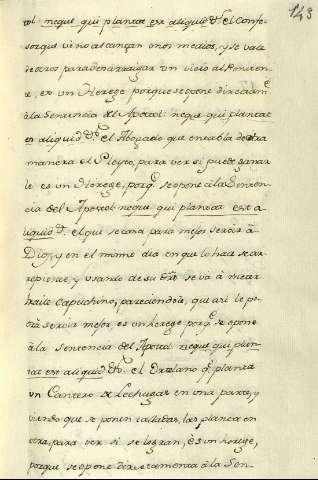 143
tol neque qui plantat est aliquid &.ª el Confe-
sor que vé no alcanzan unos medios, y se vale
de otros para desarraigar un vicio al Peniten-
te, es un Herege porque se opone directam.te
à la Sentencia del Apostol neque qui plantat
est aliquid &.ª el Abogado que entabla de otra
manera el Pleyto, para ver si puede ganar
le es un Herege, porq.e se opone à la Senten-
cia del Apostol neque qui plantat est a-
liquid &.ª el que se casa para mejor servir à
Dios, y en el mismo dia en que lo hace se arre-
repiente, y usando de su dro se và à meter
fraile Capuchino, pareciendole, que asi le po-
drà servir mejor, es un herege porq.e se opone
à la Sentencia del Apostol neque qui plan-
tat est aliquid &.ª el Ortelano q.e planta
un Cantero de Lechugas en una parte, y
viendo que se ponen talludas, las planta en
otra, para ver si se logran, es un herege,
porque se opone directamente à la Sen-